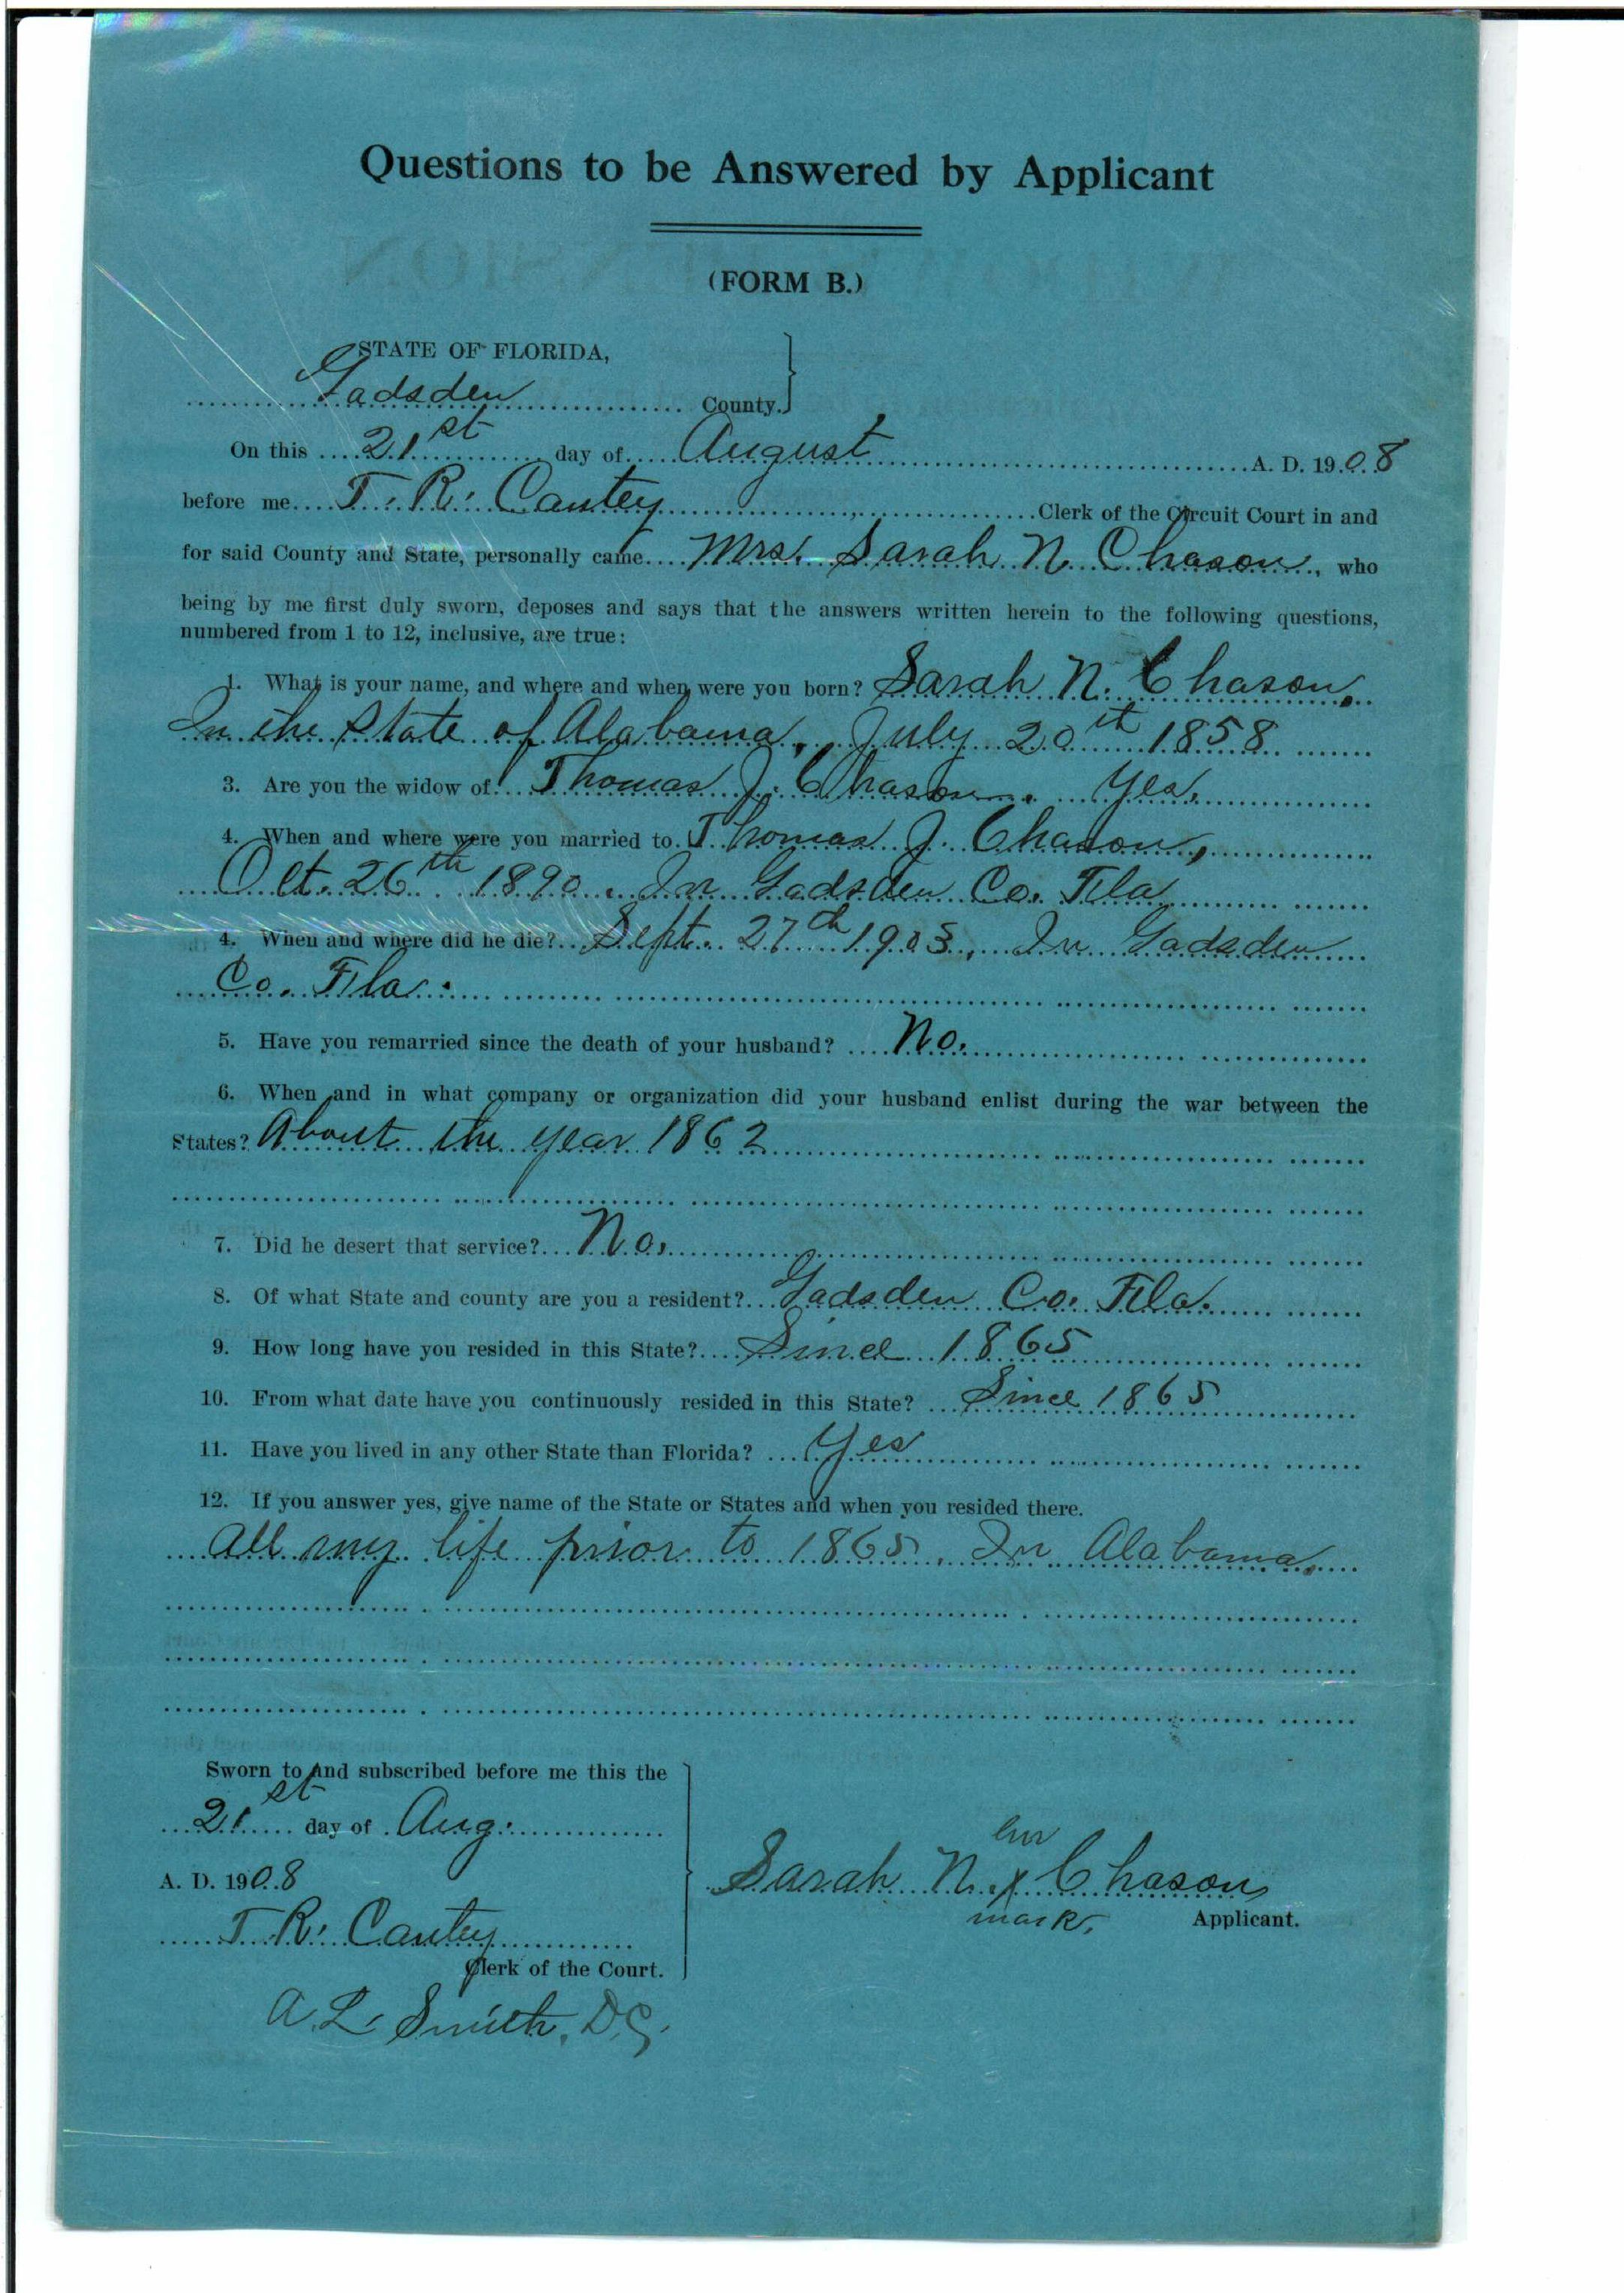 Questions to be Answered by Applicant
(FORM B.)
STATE OF FLORIDA,
Gadsden County.
On this 21st day of August A. D. 1908
before me T. R. Cantey Clerk of the Circuit Court in and
for said County and State, personally came Mrs. Sarah N. Chason, who
being by me first duly sworn, deposes and says that the answers written herein to the following questions,
numbered from 1 to 12, inclusive, are true:
1. What is your name, and where and when were you born? Sarah N. Chason,
In the State of Alabama, July 20th 1858
3. Are you the widow of Thomas J. Chason. Yes.
4. When and where were you married to Thomas J. Chason,
Oct. 26th 1890. In Gadsden Co. Fla
4. When and where did he die? Sept. 27th 1905, In Gadsden
Co. Fla.
5. Have you remarried since the death of your husband? No.
6. When and in what company or organization did your husband enlist during the war between the
States? About the year 1862
7. Did he desert that service? No.
8. Of what State and county are you a resident? Gadsden Co. Fla.
9. How long have you resided in this State? Since 1865
10. From what date have you continuously resided in this State? Since 1865
11. Have you lived in any other State than Florida? Yes
12. If you answer yes, give name of the State or States and when you resided there.
All my life prior to 1865. In Alabama.
Sworn to and subscribed before me this the
21st day of Aug.
A. D. 1908
T. R. Cantey
Clerk of the Court.
A. L. Smith, D.C.
her
Sarah N. x Chason
mark. Applicant.